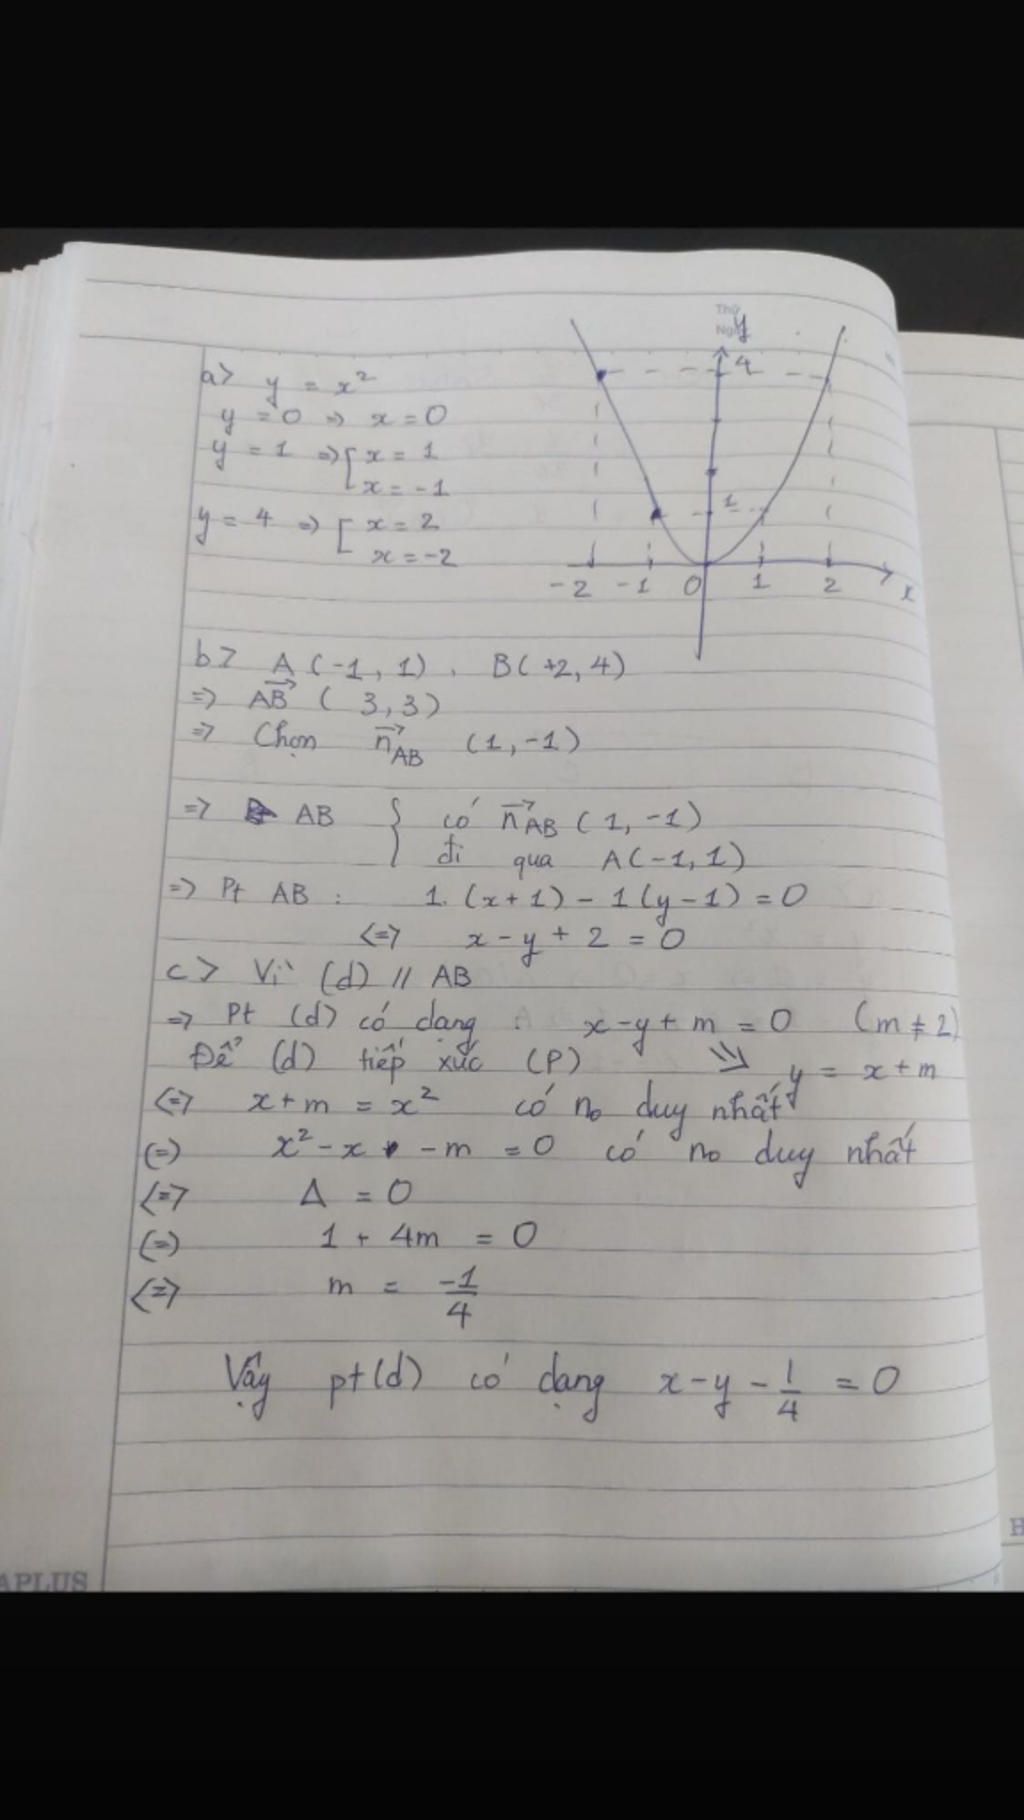 Thứ
Ngày
y
a> y = x²
y = 0 => x = 0
y = 1 => [ x = 1
x = -1
y = 4 => [ x = 2
x = -2
4
1
-2 -1 0 1 2 x
b> A (-1, 1) . B(+2, 4)
=> AB→ ( 3, 3)
=> Chọn n→AB (1, -1)
=> AB { có n→AB (1, -1)
đi qua A(-1, 1)
=> Pt AB : 1. (x+1) - 1(y-1) = 0
<=> x - y + 2 = 0
c> Vì (d) // AB
=> Pt (d) có dạng : x-y+m = 0 (m ≠ 2)
Để (d) tiếp xúc (P) => y = x+m
<=> x+m = x² có no duy nhất
(=) x² - x - m = 0 có no duy nhất
<=> Δ = 0
(=) 1 + 4m = 0
<=> m = -1/4
Vậy pt(d) có dạng x-y - 1/4 = 0
APLUS